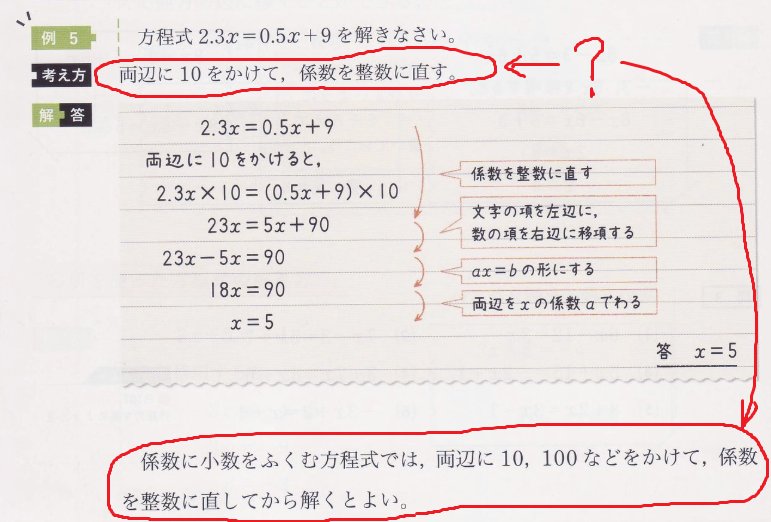 例 5 方程式 2.3x=0.5x+9 を解きなさい。
考え方 両辺に 10 をかけて，係数を整数に直す。
?
解 答
2.3x=0.5x+9
両辺に 10 をかけると，
2.3x×10=(0.5x+9)×10
係数を整数に直す
23x=5x+90
文字の項を左辺に，
数の項を右辺に移項する
23x−5x=90
ax=b の形にする
18x=90
両辺を x の係数 a でわる
x=5
答 x=5
係数に小数をふくむ方程式では，両辺に 10，100 などをかけて，係数
を整数に直してから解くとよい。